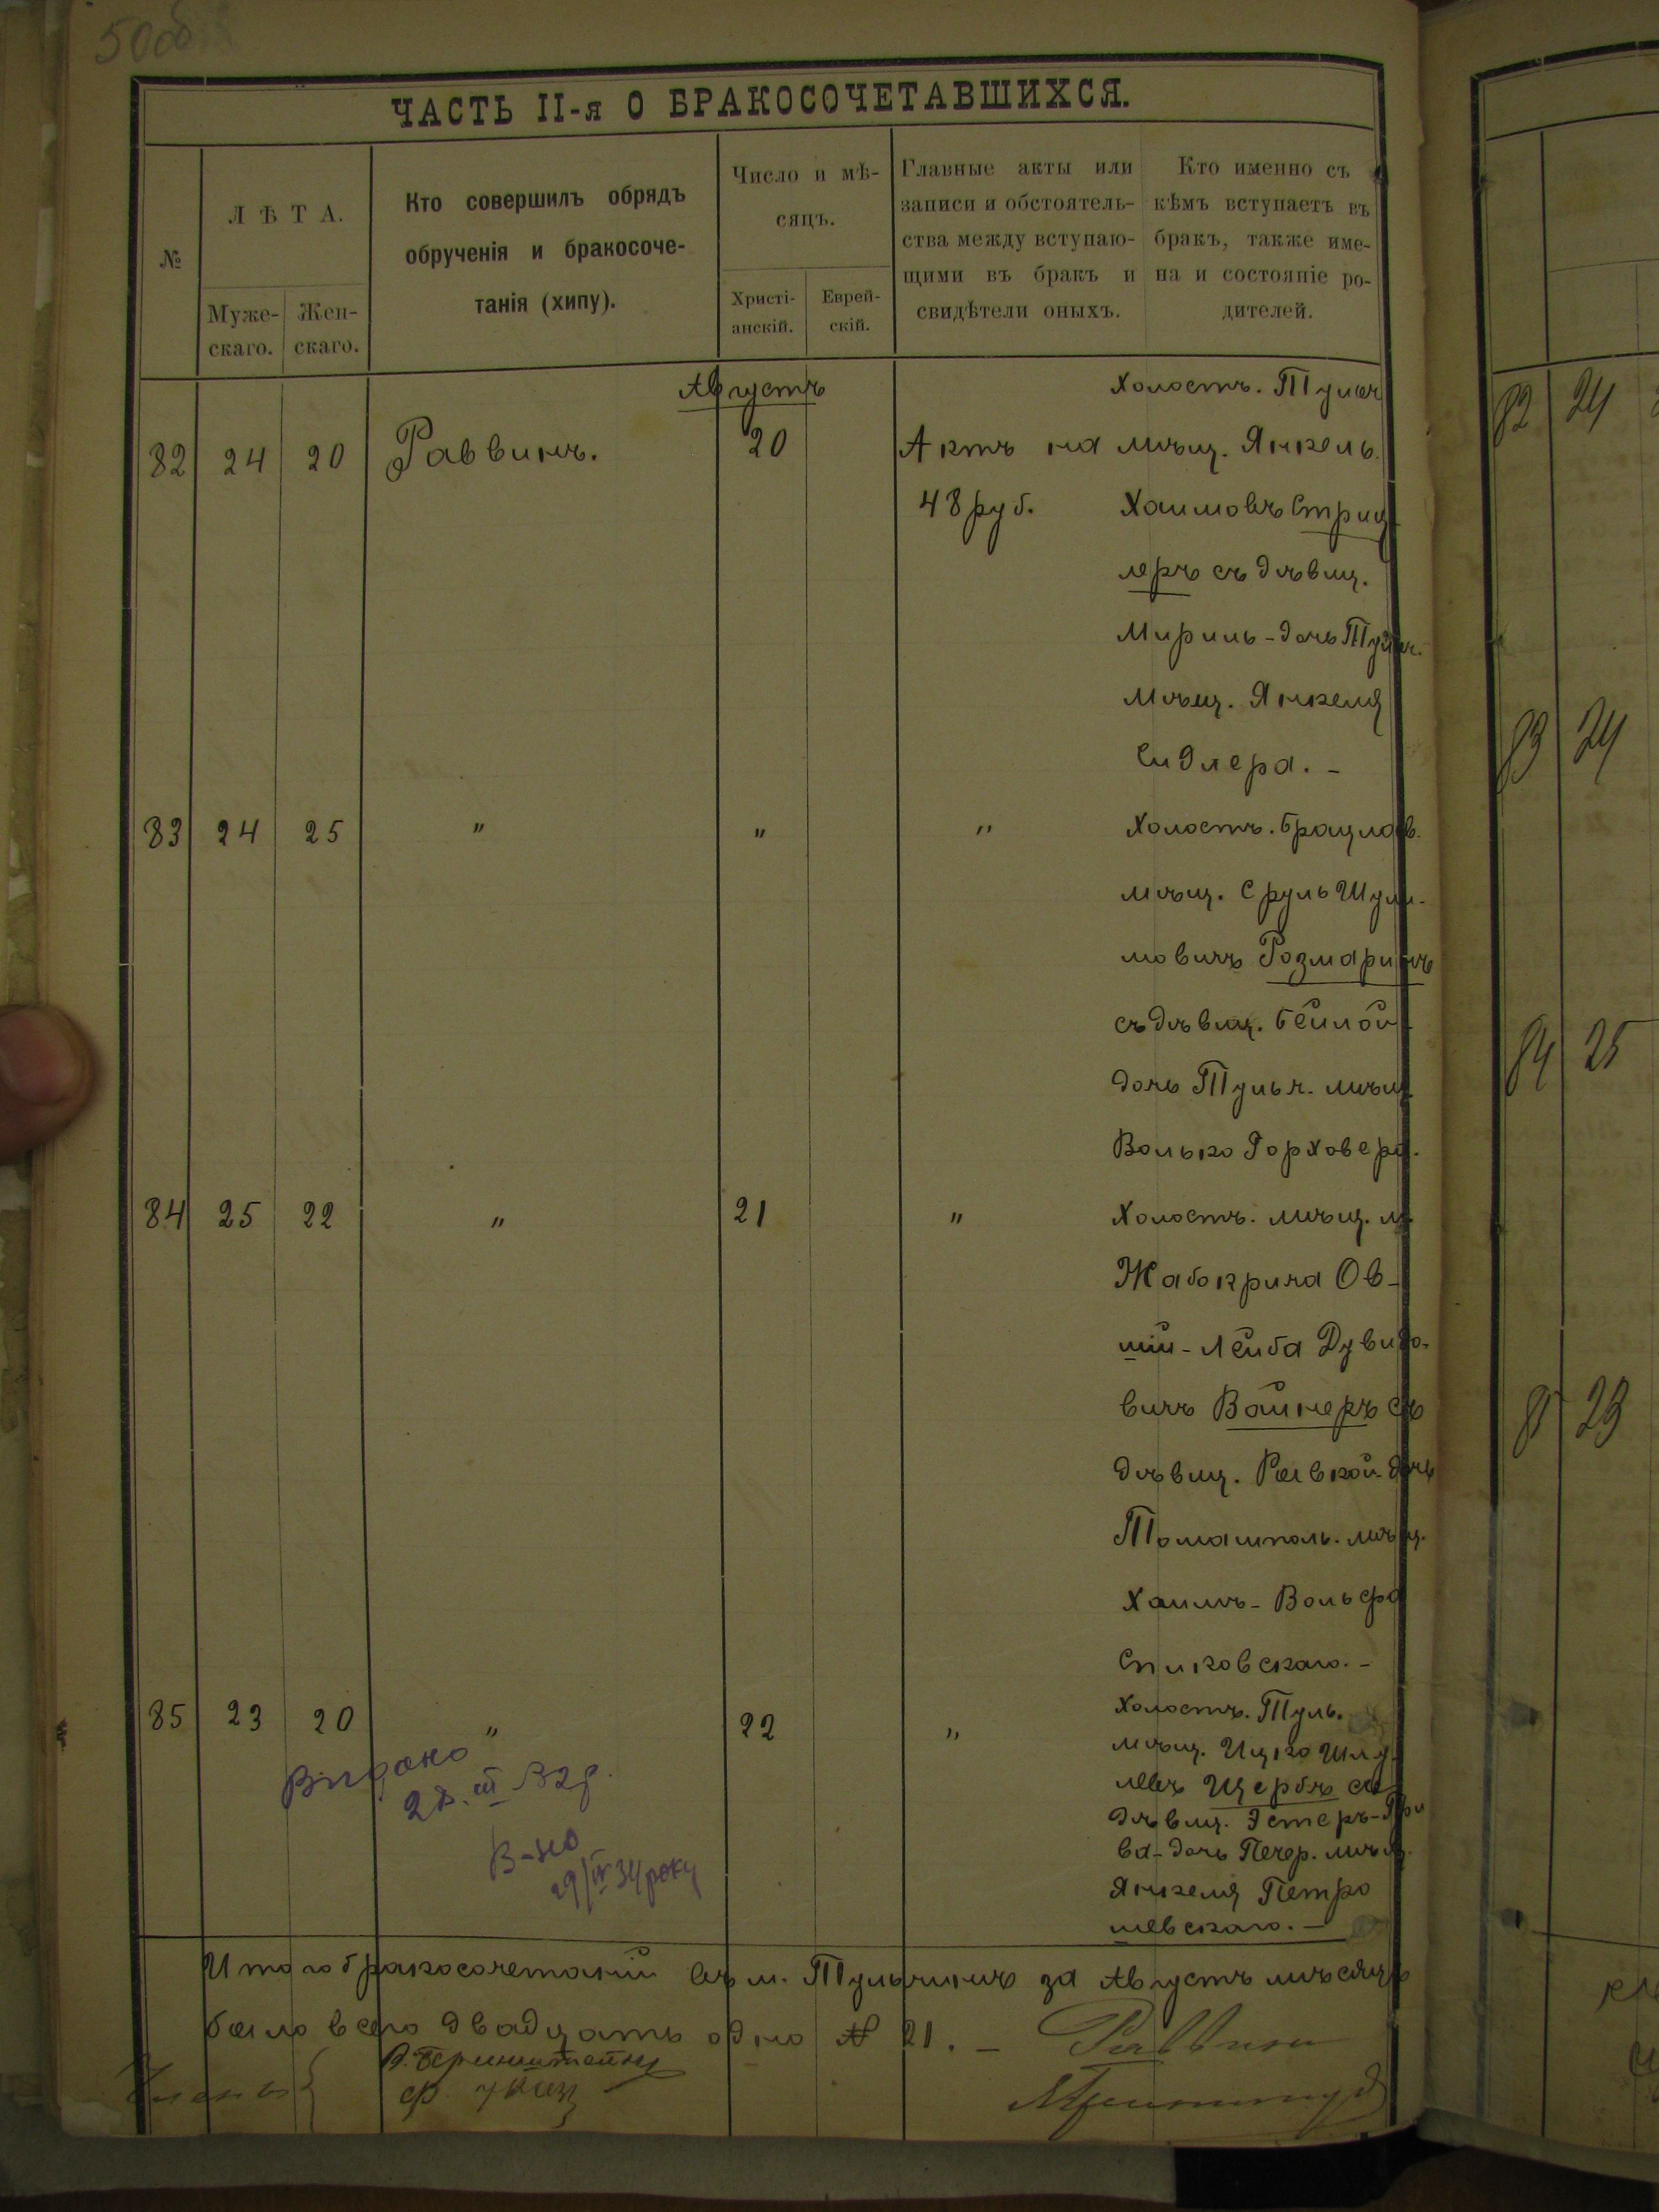 50об
ЧАСТЬ II-я О БРАКОСОЧЕТАВШИХСЯ.
№
ЛѢТА.
Муже-
скаго.
Жен-
скаго.
Кто совершилъ обрядъ
обрученія и бракосоче-
танія (хипу).
Число и мѣ-
сяцъ.
Христі-
анскій.
Еврей-
скій.
Главные акты или
записи и обстоятель-
ства между вступаю-
щими въ бракъ и
свидѣтели оныхъ.
Кто именно съ
кѣмъ вступаетъ въ
бракъ, также име-
на и состояніе ро-
дителей.
Августъ
82 24 20 Раввинъ. 20 Актъ на
48 руб.
Холостъ. Тульч
мѣщ. Янкель
Хаимовъ Стриц
леръ съ дѣвиц.
Мириль-дочь Тульч.
мѣщ. Янкеля
Сидлера. -
83 24 25 " " "
Холостъ. Брацлав.
мѣщ. Сруль Шули-
мовичъ Розмаринъ
съ дѣвиц. Бейлой
дочь Тульч. мѣщ
Волько Горховера.
84 25 22 " 21 "
Холостъ. мѣщ. м.
Жабокрича Ов-
шій-Лейба Дувидо-
вичъ Вайнеръ съ
дѣвиц. Ривкой-дочь
Томашполь. мѣщ.
Хаимъ-Вольфа
Спиковскаго. -
85 23 20 " 22 "
Холостъ. Туль.
мѣщ. Ицко Шлу
левъ Щербъ съ
дѣвиц. Эстеръ-
ва-дочь Печер. мѣщ.
Янкеля Петро
шевскаго. -
Видано
28. III 32р.
В-но
29/IV 34 року
Итого бракосочетаній въ м. Тульчинъ за Августъ мѣсяцъ
было всего двадцать одно № 21. - Раввинъ
Члены
В. Беринштейнъ
82 24
83 24
84 25
8 23